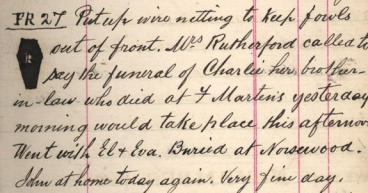 FR 27 Put up wire netting to keep fowls
out of front. Mrs Rutherford called to
say the funeral of Charlie her brother-
in-law who died at F Martin's yesterday
morning would take place this afternoon
Went with El & Eva. Buried at Norsewood.
John at home today again. Very fine day.